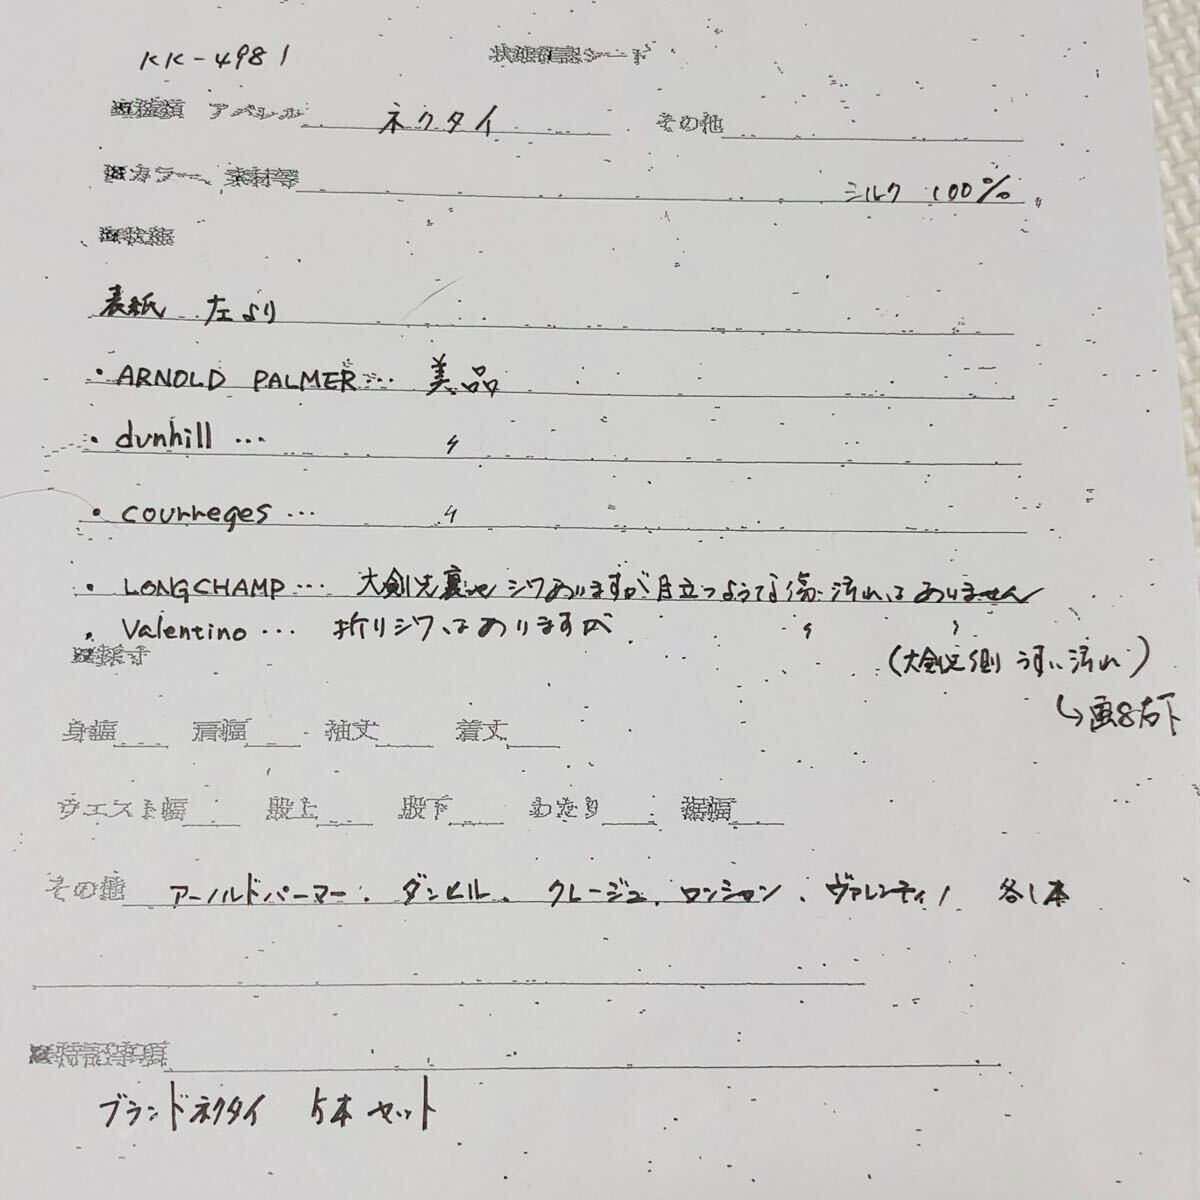 KK-4981
状態確認シート
■種類 アパレル ネクタイ その他
■カラー、素材等 シルク 100%
■状態
表紙 左より
・ARNOLD PALMER… 美品
・dunhill … 〃
・courreges … 〃
・LONGCHAMP… 大剣先裏地シワありますが目立つような傷・汚れはありません
・Valentino … 折りシワはありますが 〃 〃
(大剣先側 うすい汚れ)
↳画8右下
■採寸
身幅 肩幅 袖丈 着丈
ウエスト幅 股上 股下 わたり 裾幅
その他 アーノルドパーマー、ダンヒル、クレージュ、ロンシャン、ヴァレンティノ 各1本
■特記事項
ブランドネクタイ 5本セット